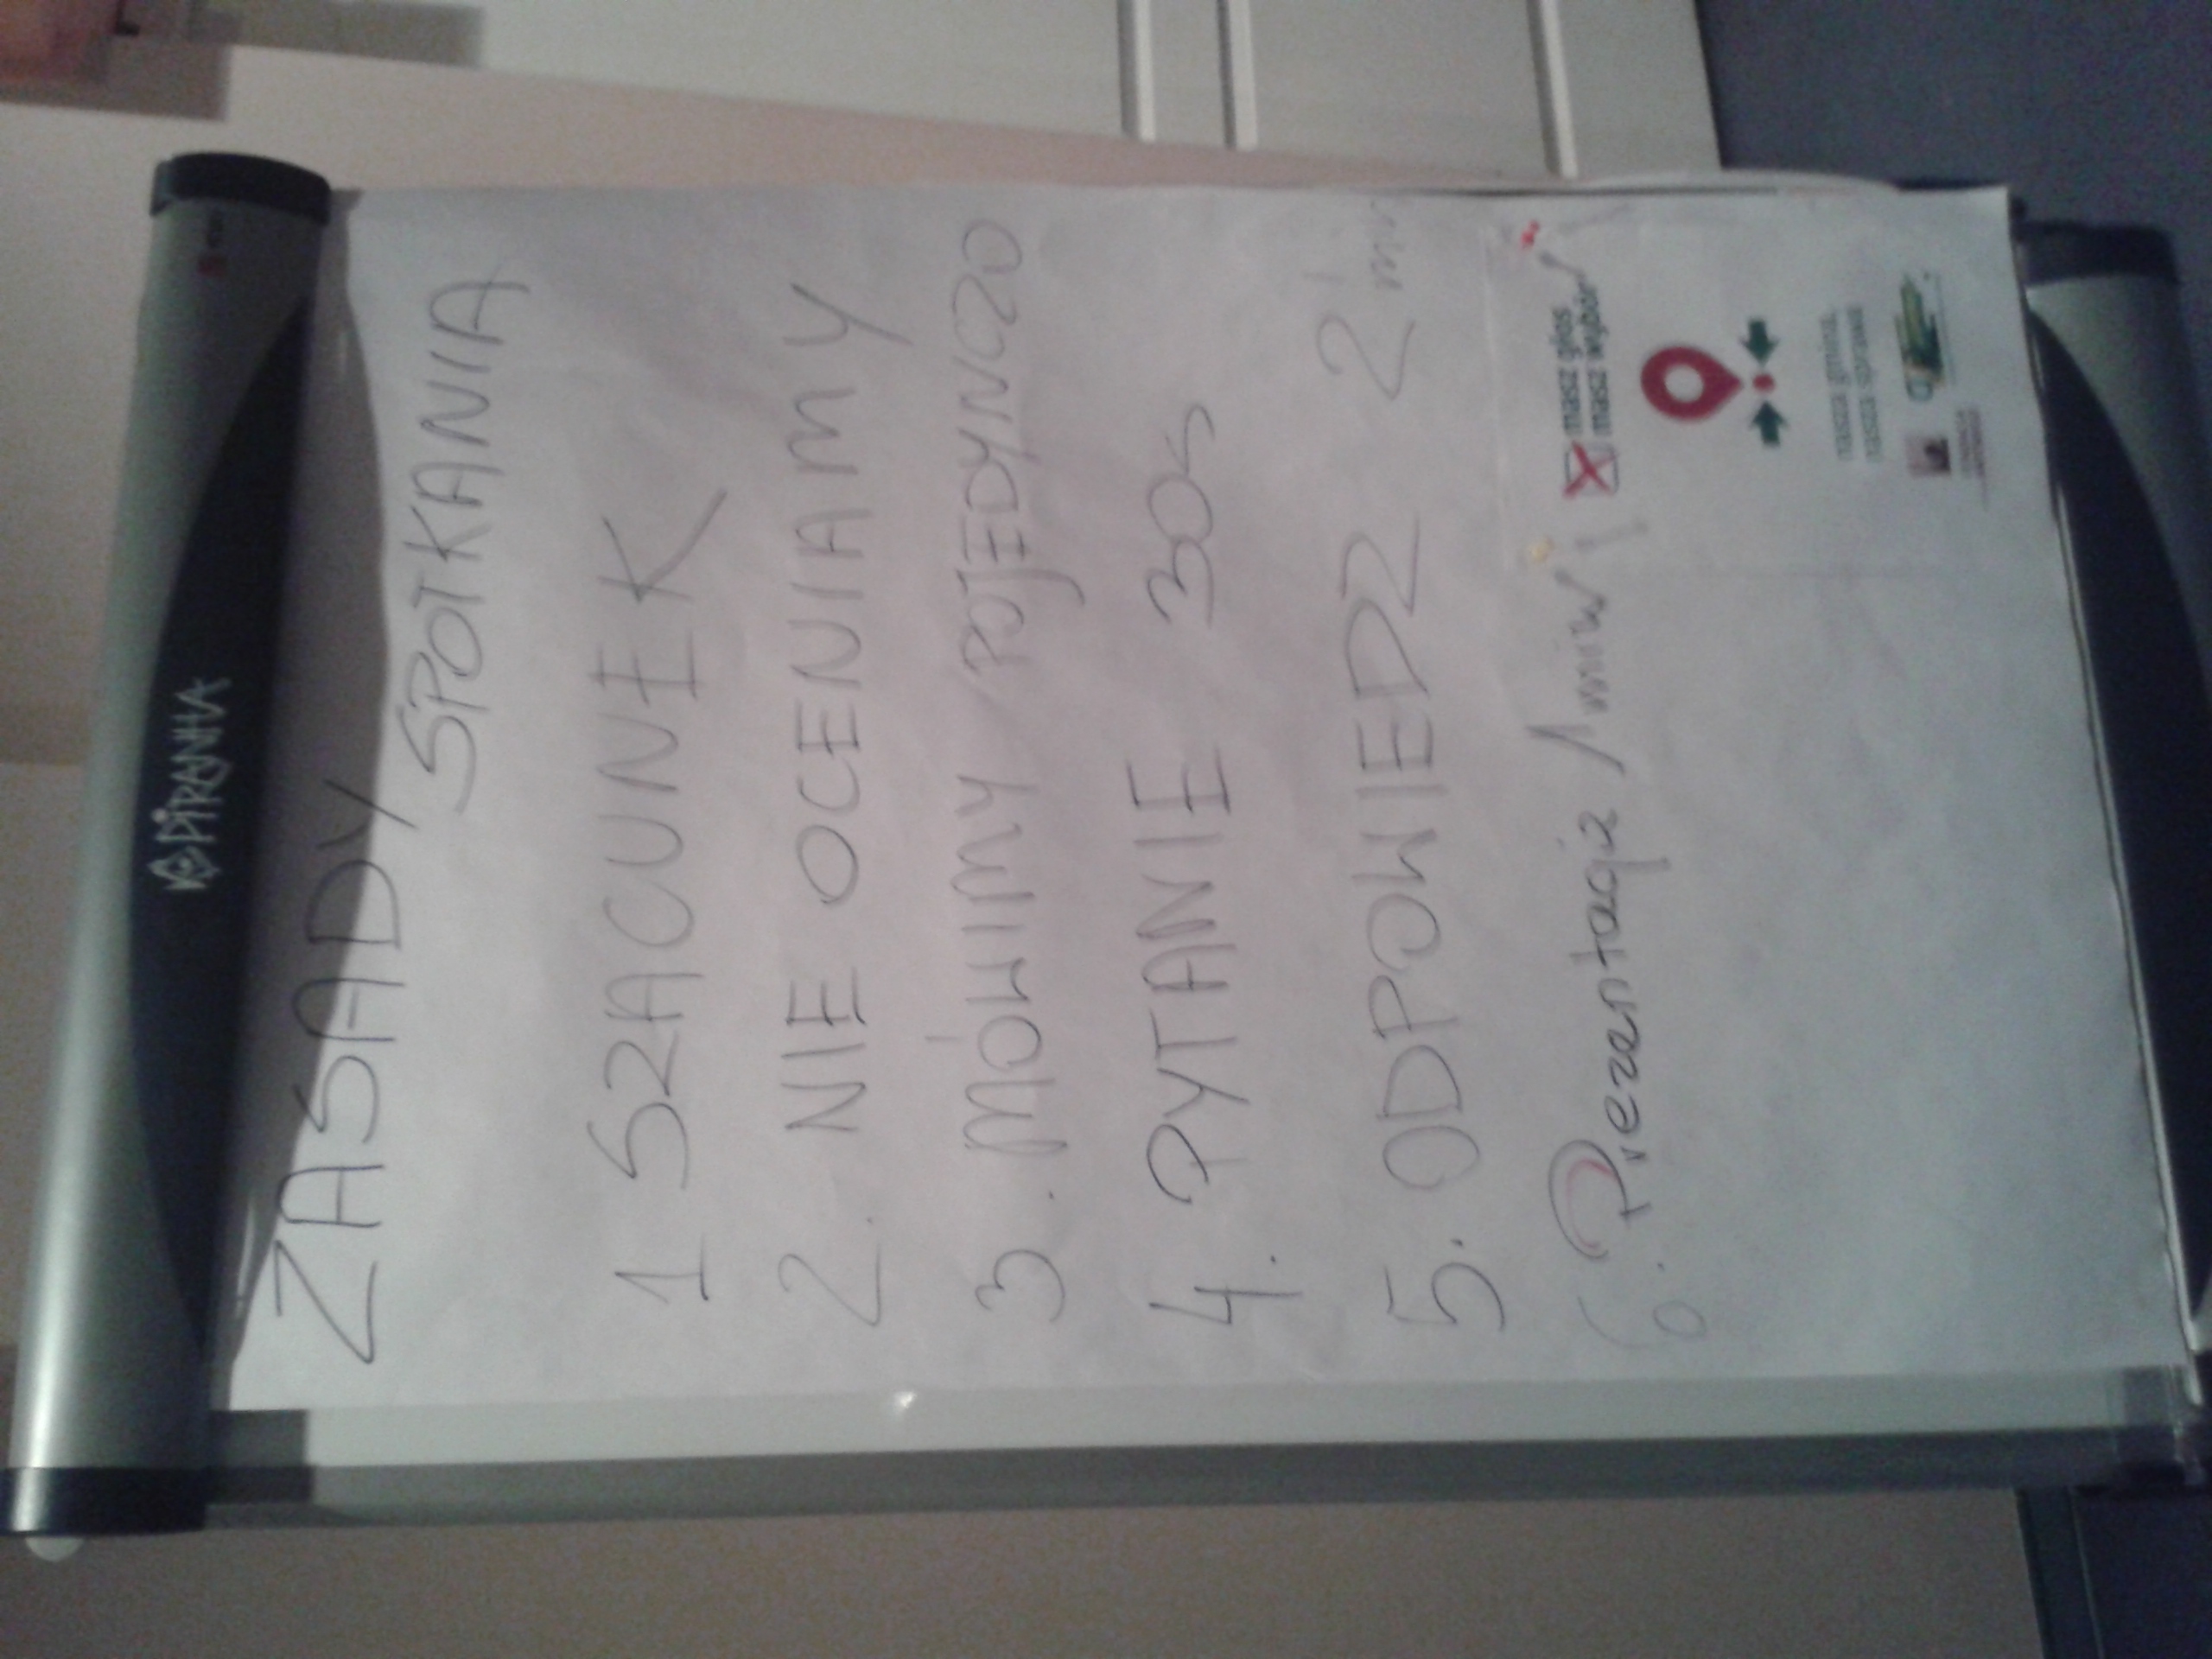 PIRANHA
ZASADY
SPOTKANIA
1 SZACUNEK
2. NIE OCENIAMY
3. MÓWIMY POJEDYNCZO
4. PYTANIE 30s
5. ODPOWIEDZ 2'
6. Prezentacja 1 min
masz głos
masz wybór
nasza gmina,
nasza sprawa